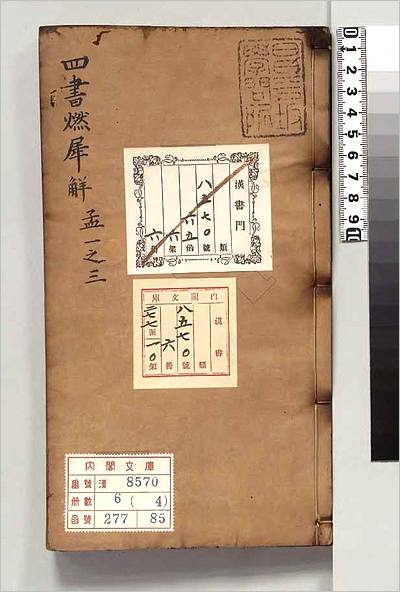 四書燃犀解 孟一之三
漢書門
類
八五七〇號
六五函
六架
六冊
内閣文庫
漢書
類
八五七〇號
六冊
二七七函
一〇架
内閣文庫
番號 漢 8570
冊數 6 ( 4)
函號 277 85
0 1 2 3 4 5 6 7 8 9 10